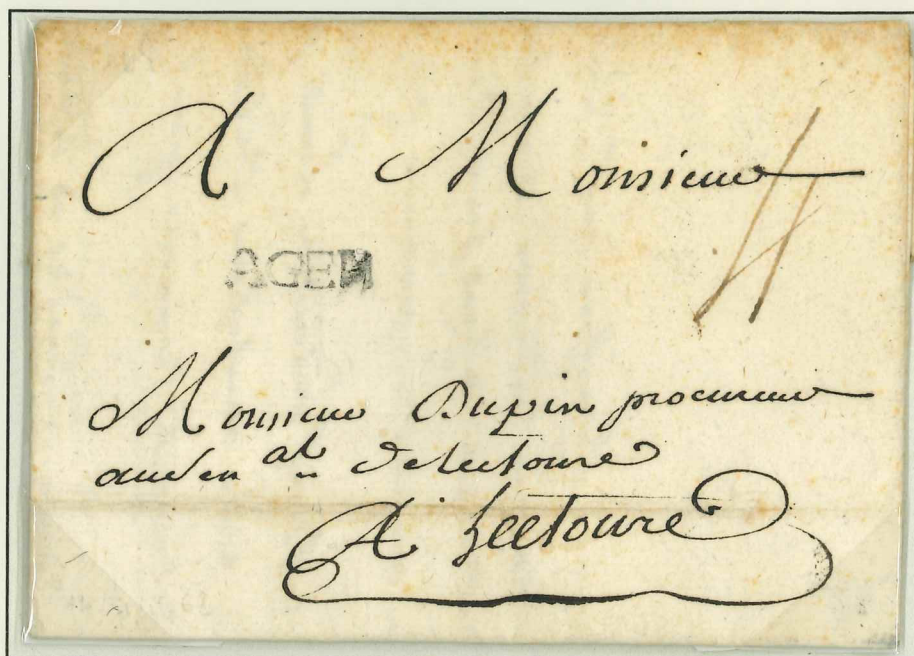 A Monsieur
AGEN
Monsieur Dupin procureur
au sen al de lectoure
A Lectoure